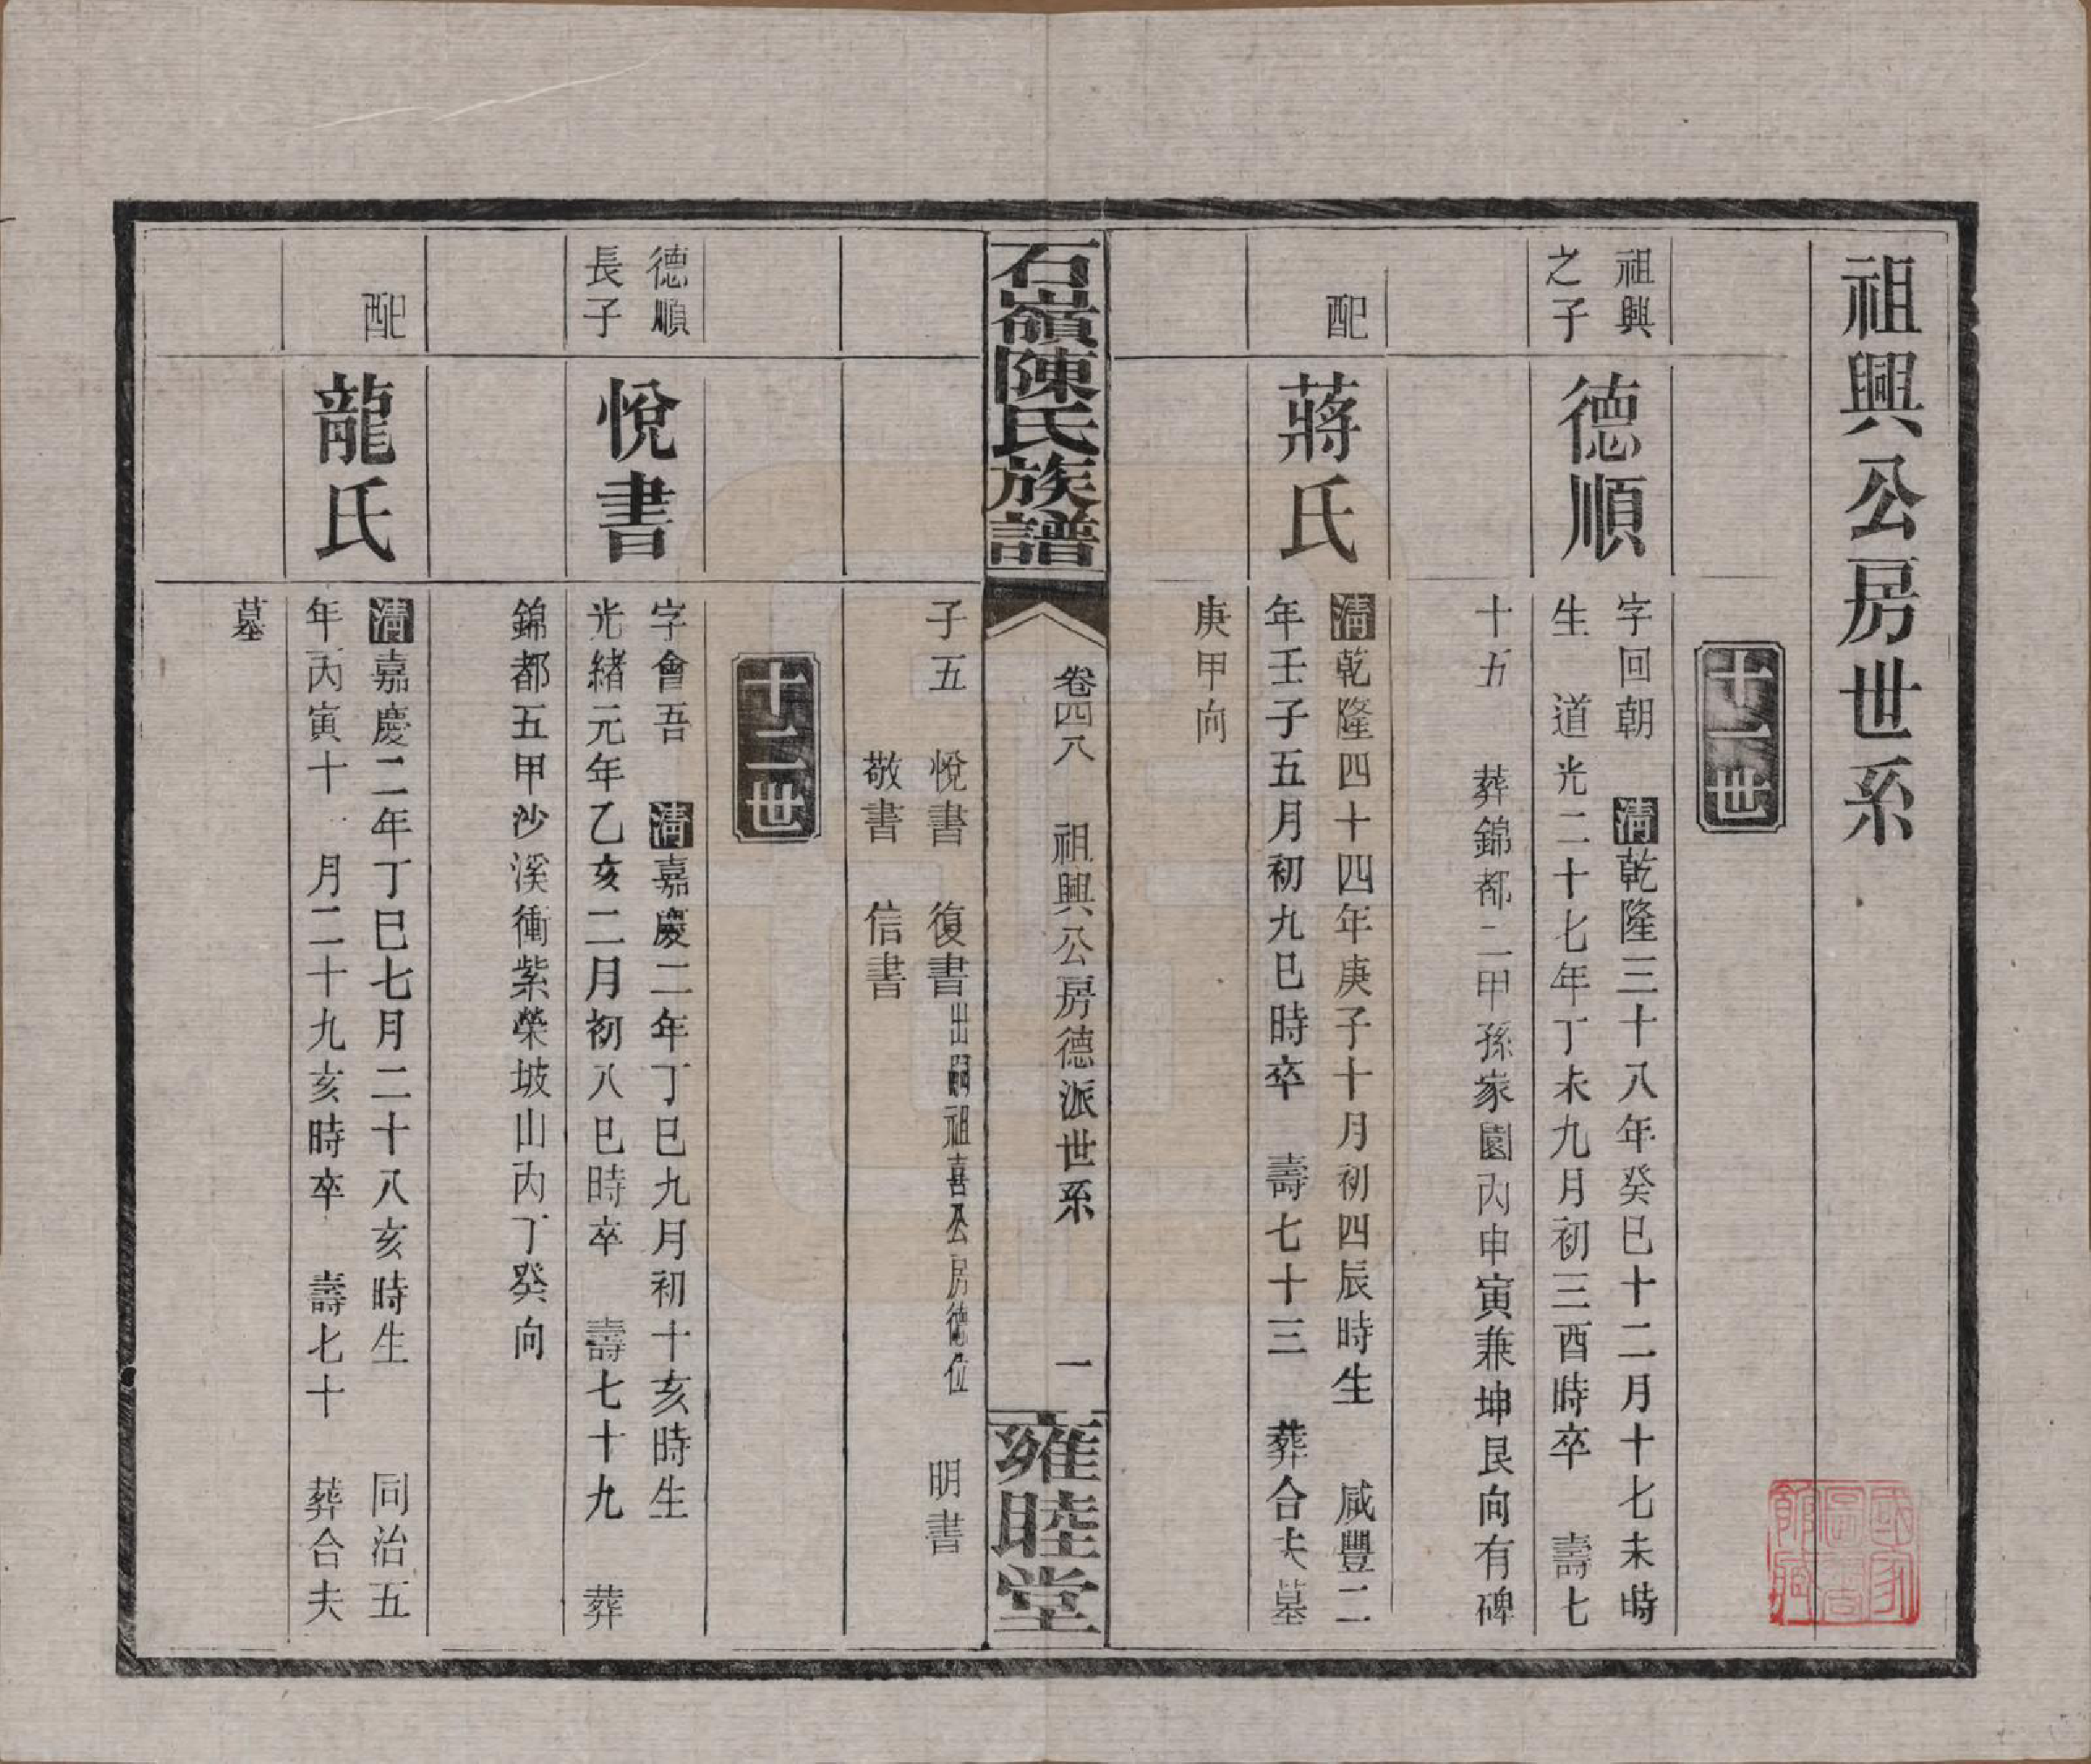 祖興公房世系
十一世
祖興
之子
德順
字回朝 清乾隆三十八年癸巳十二月十七未時
生 道光二十七年丁未九月初三酉時卒 壽七
十五 葬錦都二甲孫家園內申寅兼坤艮向有碑
配
蔣氏
清乾隆四十四年庚子十月初四辰時生 咸豐二
年壬子五月初九巳時卒 壽七十三 葬合夫墓
庚甲向
石嶺陳氏族譜
卷四八 祖興公房德派世系
一
雍睦堂
子五 悅書 復書出嗣祖喜公房德位 明書
敬書 信書
十二世
德順
長子
悅書
字會吾 清嘉慶二年丁巳九月初十亥時生
光緒元年乙亥二月初八巳時卒 壽七十九 葬
錦都五甲沙溪衝紫榮坡山內丁癸向
配
龍氏
清嘉慶二年丁巳七月二十八亥時生 同治五
年丙寅十 月二十九亥時卒 壽七十 葬合夫
墓